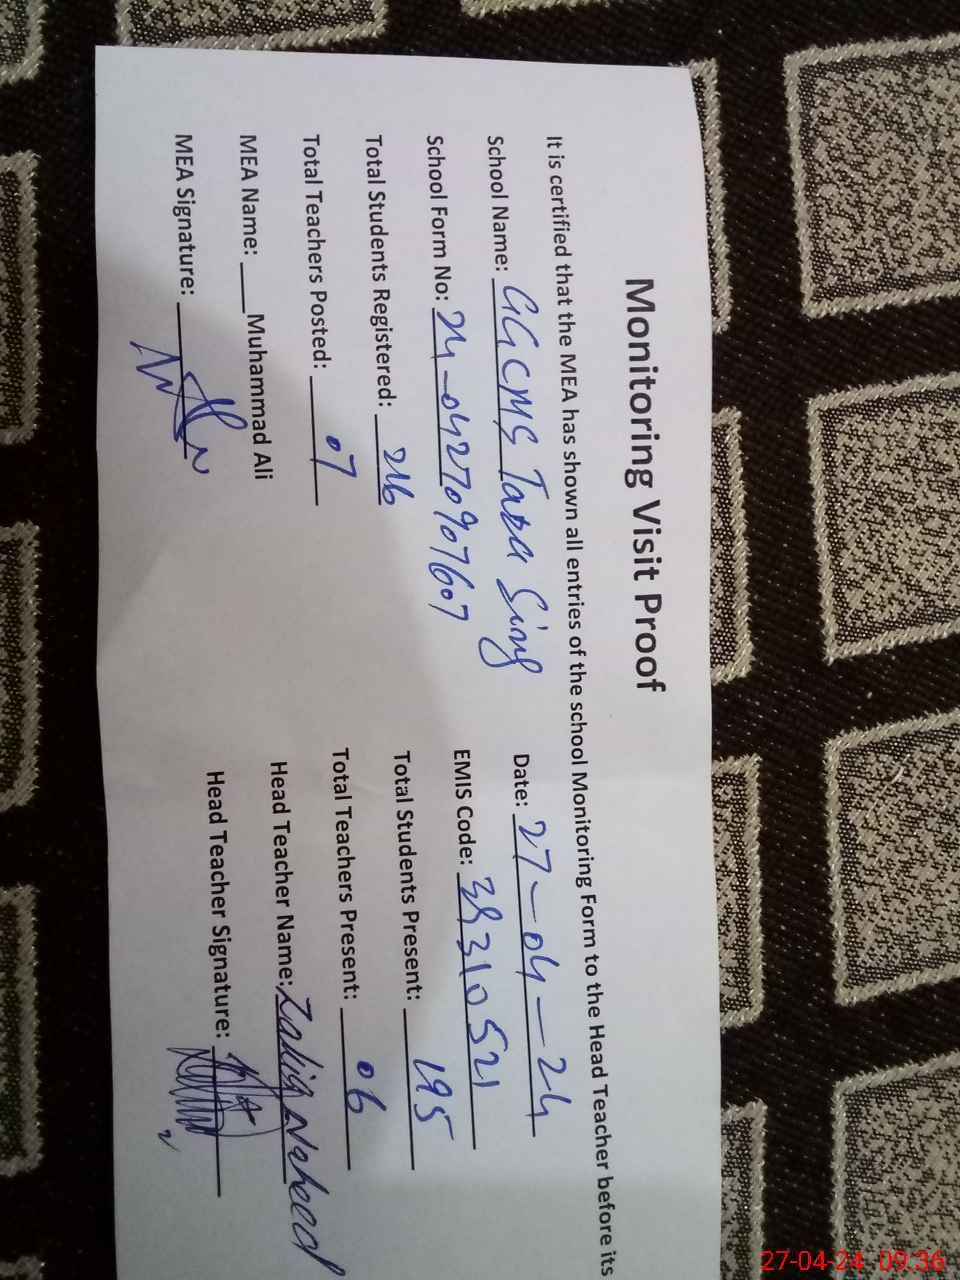 Monitoring Visit Proof
It is certified that the MEA has shown all entries of the school Monitoring Form to the Head Teacher before its
School Name: GGCMS Tara Sing Date: 27-04-24
School Form No: 24-04270907607 EMIS Code: 38310521
Total Students Registered: 216 Total Students Present: 195
Total Teachers Posted: 07 Total Teachers Present: 06
MEA Name: Muhammad Ali Head Teacher Name: Naheed
MEA Signature: Head Teacher Signature:
27-04-24 09:36